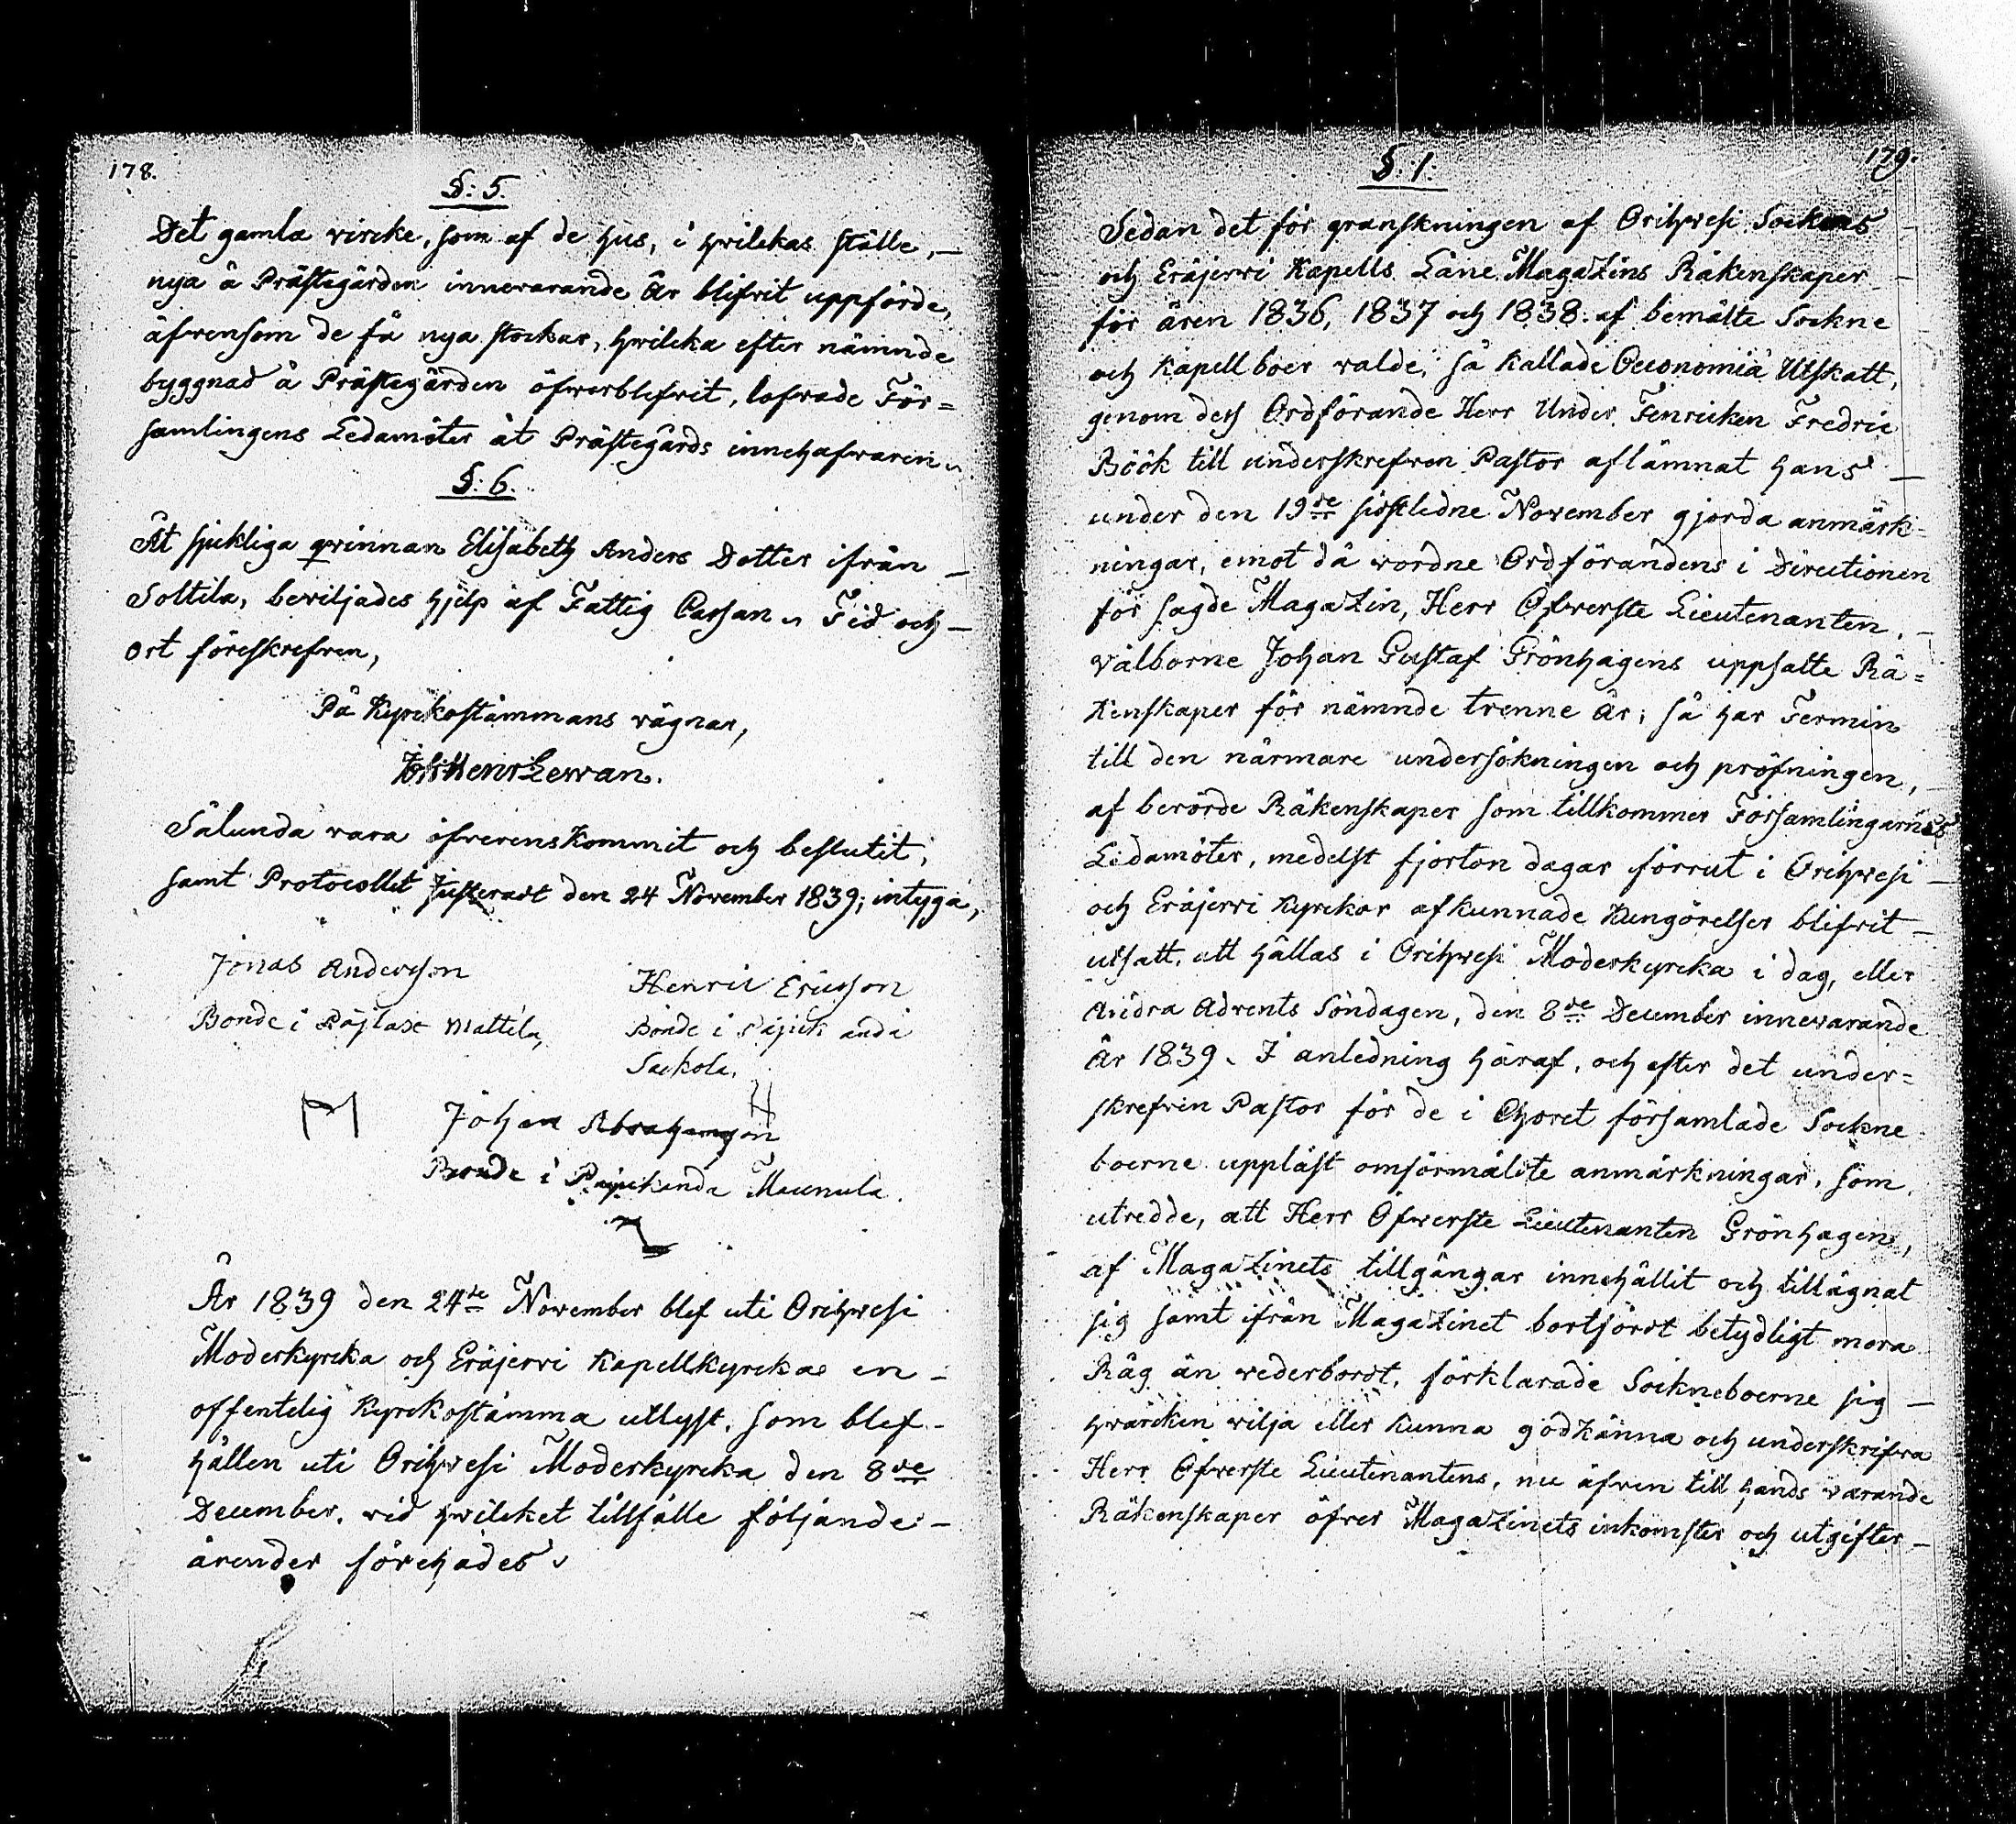 178.
§: 5.
Det gamla vircke, som af de hus, i hvilckas ställe, –
nya å Prästegården innevarande År blifvit uppförde,
äfvensom de få nya stockar, hvilcka efter nämnde
byggnad å Prästegården öfverblefvit, lofvade För=
samlingens Ledamöter åt Prästegårds innehafvaren.
§: 6.
Åt sjukliga qvinnan Elisabeth Anders Dotter ifrån –
Soltila, beviljades hjelp af Fattig Cassan. Tid och –
ort föreskrefven,
På Kyrckostämmans vägnar,
Joh: Henr Levan.
Sålunda vara öfverenskommit och beslutit,
samt Protocollet Justeradt den 24 November 1839; intyga,
Jonas Andersson
Bonde i Päjlax Mattila,
Henric Ericsson
Bonde i Päjick andi
Sackola.
Johan Abrahamsson
Bonde i Päjickanda Maunula.
År 1839 den 24de November blef uti Orihvesi
Moderkyrcka och Eräjervi Kapellkyrcka en –
offentelig Kyrckostämma utlyst, som blef –
hållen uti Orihvesi Moderkyrcka den 8de
December, vid hvilcket tillfälle följande –
ärender förehades.
179.
§: 1:
Sedan det för granskningen af Orihvesi Sockens
och Eräjervi Kapells Låne Magazins Räkenskaper
för åren 1836, 1837 och 1838. af bemälte Sockne
och Kapellboer valde, så kallade Oeconomiä Utskatt,
genom dess Ordförande Herr Under Fenricken Fredric
Böök till underskrefven Pastor aflämnat hans –
under den 19de sidstledne November gjorda anmärk=
ningar, emot då vordne Ordförandens i Directionen
för sagde Magazin, Herr Öfverste Lieutenanten, –
välborne Johan Gustaf Grönhagens uppsatte Rä=
kenskaper för nämnde trenne År; så har Termin
till den närmare undersökningen och pröfningen,
af berörde Räkenskaper som tillkommer Församlingarnes
Ledamöter, medelst fjorton dagar förrut i Orihvesi –
och Eräjervi Kyrckor afkunnade Kungörelser blifvit –
utsatt, att hållas i Orihvesi Moderkyrcka i dag, eller
Andra Advents Söndagen, den 8de December innevarande
År 1839. I anledning häraf, och efter det under=
skrefven Pastor för de i Choret församlade Sockne
boerne uppläst omförmälte anmärkningar, som
utredde, att Herr Öfverste Lieutenanten Grönhagen,
af Magazinets tillgångar innehållit och tillägnat
sig samt ifrån Magazinet bortfördt betydligt mera
Råg än vederbordt, förklarade Sockneboerne sig –
hvarcken vilja eller kunna godkänna och underskrifva
Herr Öfverste Lieutenantens, nu äfven till hands varande
Räkenskaper öfver Magazinets inkomster och utgifter –